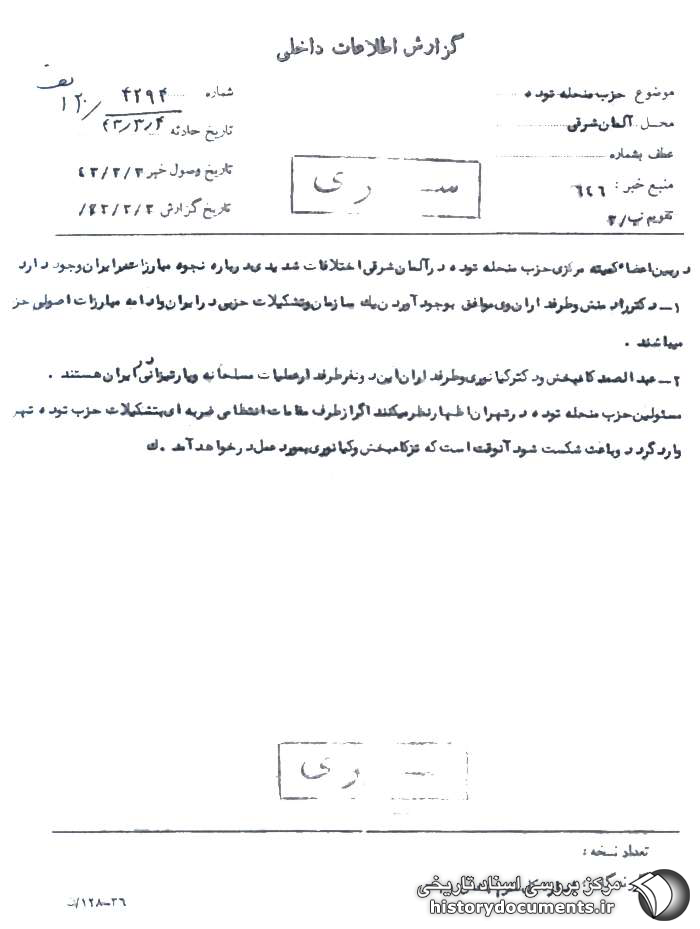 گزارش اطلاعات داخلی
موضوع حزب منحله توده
محل آلمان شرقی
عطف بشماره
منبع خبر : ٦٤٦
تقویم ب/۳
شماره ۴۲۹۴
۱۲۰/
تاریخ حادثه ۴۳/۳/۴
تاریخ وصول خبر ۴۳/۳/۳
تاریخ گزارش ۴۳/۳/۳
سری
دربین اعضاء کمیته مرکزی حزب منحله توده در آلمان شرقی اختلافات شدیدی درباره نحوه مبارزات در ایران وجود دارد
۱ – دکتر راد منش وطرفداران وی موافق بوجود آوردن یک سازمان وتشکیلات حزبی در ایران وادامه مبارزات اصولی حز
میباشند .
۲ – عبدالصمد کامبخش ودکتر کیانوری وطرفداران این دونفر طرفدار عملیات مسلحانه وپارتیزانی در ایران هستند .
مسئولین حزب منحله توده در تهران اظهار نظر میکنند اگر از طرف مقامات انتظامی ضربه ای بتشکیلات حزب توده تهر
وارد گردد وباعث شکست شود آنوقت است که تز کامبخش وکیانوری بمورد عمل در خواهد آمد . ك
سری
تعداد نسخه :
۳٦–۱۲۸/ت
مرکز بررسی اسناد تاریخی
historydocuments.ir